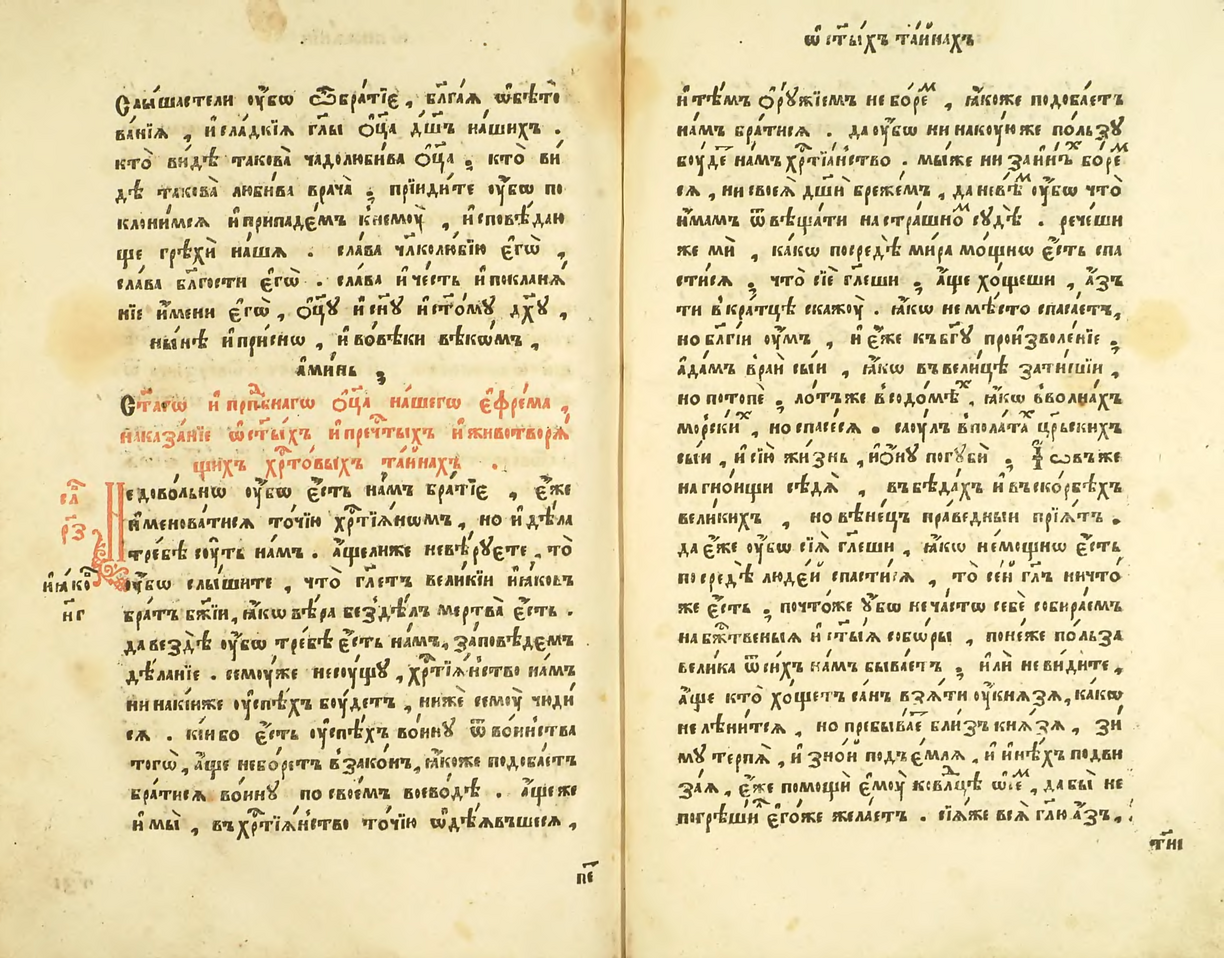 Слышастели ᲂу҆́бѡ ѿбра́тїе, бл҃га́ѧ ѡ҆бѣто
ва́нїѧ, и҆ сла́дкїѧ гл҃ы ѻ҆ц҃а̀ дш҃ъ на́шихъ.
кто̀ видѣ̀ такова̀ чадолюби́ва ѻ҆ц҃а̀; кто̀ ви
дѣ̀ такова̀ любива врача̀; прїиди́те ᲂу҆̀бѡ по
клони́мсѧ и҆ припаде́мъ к немꙋ̀, и҆сповѣ́даю
ще грѣхѝ на́шѧ. сла́ва чл҃колю́бїю є҆гѡ̀,
сла́ва бл҃гости є҆гѡ̀. сла́ва и҆ че́сть и҆ поклонѧ́
нїе и҆́мени є҆гѡ̀, ѻ҆ц҃ꙋ̀ и҆ сн҃ꙋ и҆ ст҃о́мꙋ дх҃ꙋ,
ны́нѣ и҆ при́снѡ, и҆ во́вѣки вѣко́мъ,
а҆ми́нь;
Ст҃а́гѡ и҆ прпⷣбнагѡ ѻ҆ц҃а̀ на́шегѡ є҆фре́ма,
наказа́нїе ѡ҆ ст҃ы́хъ и҆ пречⷭ҇тыхъ и҆ животворѧ́
щихъ хрⷭ҇то́выхъ та́йнахъ.
сл҃
рз҃
Недово́льнѡ ᲂу҆̀бѡ є҆́сть на́мъ бра́тїе, є҆́же
и҆менова́тисѧ то́чїю хрⷭ҇тїѧ́нѡмъ, но и҆ дѣла
тре́бѣ сꙋ́ть на́мъ. а҆́щелиже невѣ́рꙋете, то̀
и҆ѧ́ко
н҃г
ᲂу҆̀бѡ слы́шите, что̀ гл҃етъ вели́кїи и҆ѧ́ковъ
бра́тъ бж҃їи, ꙗ҆́кѡ вѣ́ра без̾дѣ́лъ мертва̀ є҆́сть.
да вездѣ̀ ᲂу҆̀бѡ тре́бѣ є҆́сть на́мъ, за́повѣдемъ
дѣ́ланїе. семꙋ́же несꙋ́щꙋ, хрⷭ҇тїѧ́нство на́мъ
ни накі́иже ᲂу҆спѣ́хъ бꙋ́детъ, нижѐ семꙋ̀ чиди
сѧ. кі́ибо є҆́сть ᲂу҆спѣ́хъ во́инꙋ ѿ во́инства
тогѡ̀, а҆́ще небо́ретъ в̾зако́нъ, ꙗ҆́коже подоба́етъ
бра́тисѧ во́инꙋ по свое́мъ воево́дѣ. а҆́щеже
и҆ мы̀, въ хрⷭ҇тїѧ́нство то́чїю ѡ҆дѣ́ѧвъшесѧ,
пе҃
ѡ҆ ст҃ы́хъ та́йнахъ
и҆ тѣ́мъ ѻ҆рꙋ́жїемъ не бо́реⷨ, ꙗ҆́коже подоба́етъ
на́мъ бра́тисѧ. да ᲂу҆̀бѡ ни накꙋ́иже по́льзꙋ
бꙋ́де на́мъ хрⷭ҇тїа́нство. мы́же ни за и҆́ниⷯ бо́реⷨ
сѧ, ни своеѧ̀ дш҃ѝ бреже́мъ, да не вѣ́ⷨ ᲂу҆̀бѡ что̀
и҆́мамъ ѿвѣща́ти на стра́шноⷨ сꙋдѣ̀. рече́ши
же мѝ, ка́кѡ посредѣ̀ ми́ра мо́щнѡ є҆́сть спа
сти́сѧ; что̀ сїѐ гл҃еши; а҆́ще хо́щеши, а҆́зъ
ти в кра́тцѣ скажꙋ̀. ꙗ҆́кѡ не мѣ́сто спаса́етъ,
но бл҃гі́и ᲂу҆́мъ, и҆ є҆́же къ бг҃ꙋ произволе́нїе;
а҆да́мъ в ра́и сы́и, ꙗ҆́кѡ въ вели́цѣ зати́шїи,
но потопѐ; ло́тъже в содо́мѣⷯ, ꙗ҆́кѡ в волна́хъ
морски́ⷯ, но спасе́сѧ. саꙋ́лъ в пола́таⷯ цр҃ьскихъ
сы́и, и҆ сїю̀ жи́знь, и҆ ѻ҆́нꙋ погꙋбѝ; і҆́ѡвъже
на гно́ищи сѣдѧ̀, въ бѣда́хъ и҆ въ ско́рбѣхъ
вели́кихъ, но вѣне́цъ пра́ведныи прїѧ́тъ.
да є҆́же ᲂу҆̀бѡ сїѧ̀ гл҃еши, ꙗ҆́кѡ не мо́щнѡ є҆́сть
посредѣ̀ люде́й спасти́сѧ, то́ сеи гл҃ъ ничто́
же є҆́сть; почто́же ᲂу҆́бѡ не ча́стѡ себѐ собира́емъ
на бж҃твеныѧ и҆ ст҃ы́ѧ собѡ́ры, поне́же по́льза
вели́ка ѿ си́хъ на́мъ быва́етъ; и҆лѝ не ви́дите,
а҆́ще кто̀ хо́щетъ са́нъ взѧ́ти ᲂу҆ кнѧ́зѧ, ка́кѡ
не лѣни́тсѧ, но пребыва́е бли́зъ кнѧ́зѧ, зи́
мꙋ терпѧ̀, и҆ зно́й под̾е́млѧ, и҆ и҆нѣ́хъ подви
за́ѧ, є҆́же помощѝ є҆мꙋ̀ ко влⷣцѣ ѡ҆ се́ⷨ, да бы̀ не
погрѣши́лⷭ є҆го́же жела́етъ. сїѧ́же всѧ̀ гл҃ю а҆́зъ,
тн҃і